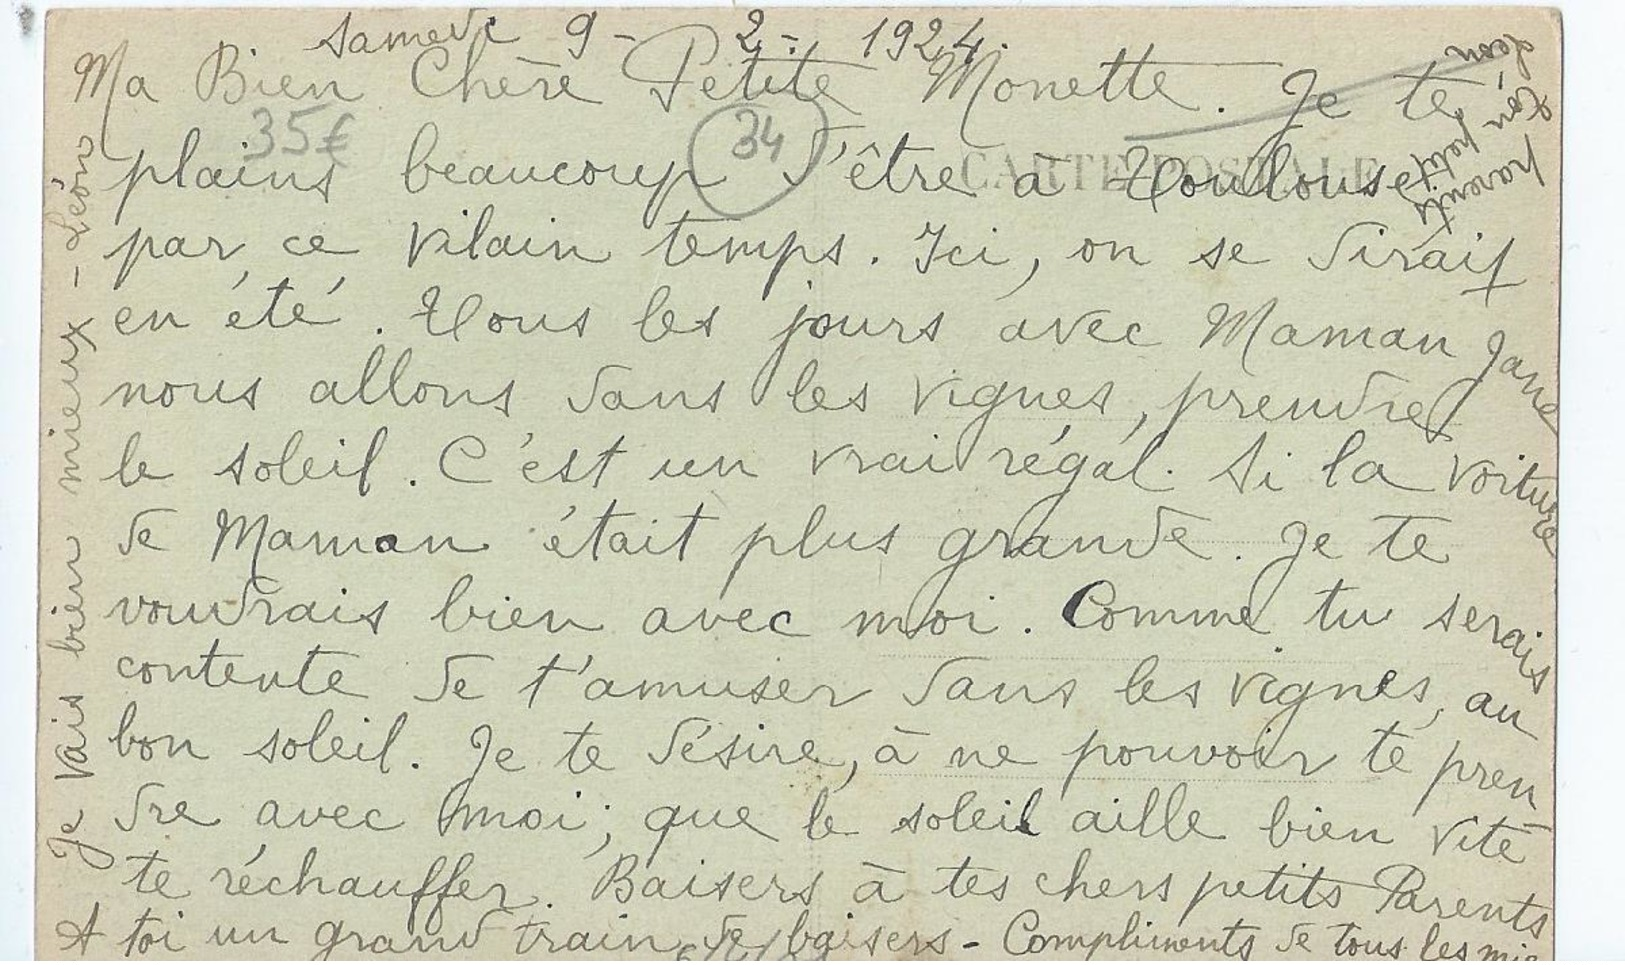 Samedi 9 - 2 - 1924.
Ma Bien Chère Petite Monette. Je te
35€
34
CARTE POSTALE
plains beaucoup d'être à Toulouse
par ce vilain temps. Ici, on se dirait
en été. Tous les jours avec Maman Jane
nous allons dans les vignes, prendre
le soleil. C'est un vrai régal. Si la voiture
de Maman était plus grande. Je te
voudrais bien avec moi. Comme tu serais
contente de t'amuser dans les vignes, au
bon soleil. Je te désire, à ne pouvoir te pren
dre avec moi, que le soleil aille bien vite
te réchauffer. Baisers à tes chers petits Parents
A toi un grand train de baisers - Compliments de tous les
Je vais bien mieux - Léon
parents
Ton petit
Léon